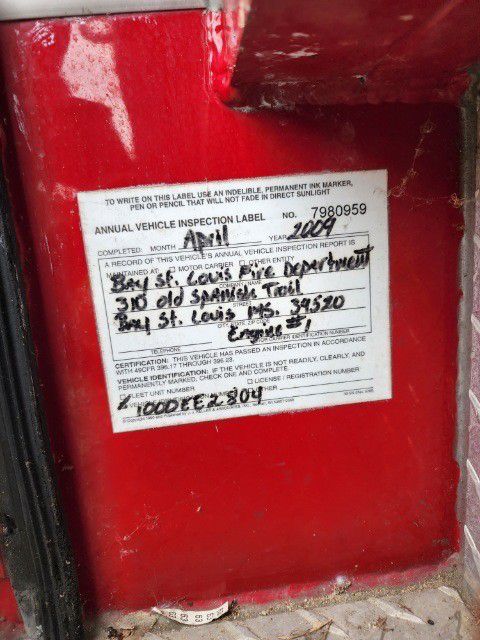 TO WRITE ON THIS LABEL USE AN INDELIBLE, PERMANENT INK MARKER,
PEN OR PENCIL THAT WILL NOT FADE IN DIRECT SUNLIGHT
ANNUAL VEHICLE INSPECTION LABEL NO. 7980959
COMPLETED: MONTH April YEAR 2009
A RECORD OF THIS VEHICLE'S ANNUAL VEHICLE INSPECTION REPORT IS
MAINTAINED AT: MOTOR CARRIER OTHER ENTITY
Bay St. Louis Fire Department
COMPANY NAME
310 old Spanish Trail
STREET
Bay St. Louis Ms. 39520
Engine #1
TELEPHONE MOTOR CARRIER IDENTIFICATION NUMBER
CERTIFICATION: THIS VEHICLE HAS PASSED AN INSPECTION IN ACCORDANCE
WITH 49CFR 396.17 THROUGH 396.23.
VEHICLE IDENTIFICATION: IF THE VEHICLE IS NOT READILY, CLEARLY, AND
PERMANENTLY MARKED, CHECK ONE AND COMPLETE.
FLEET UNIT NUMBER LICENSE / REGISTRATION NUMBER
OTHER
1000EE2804